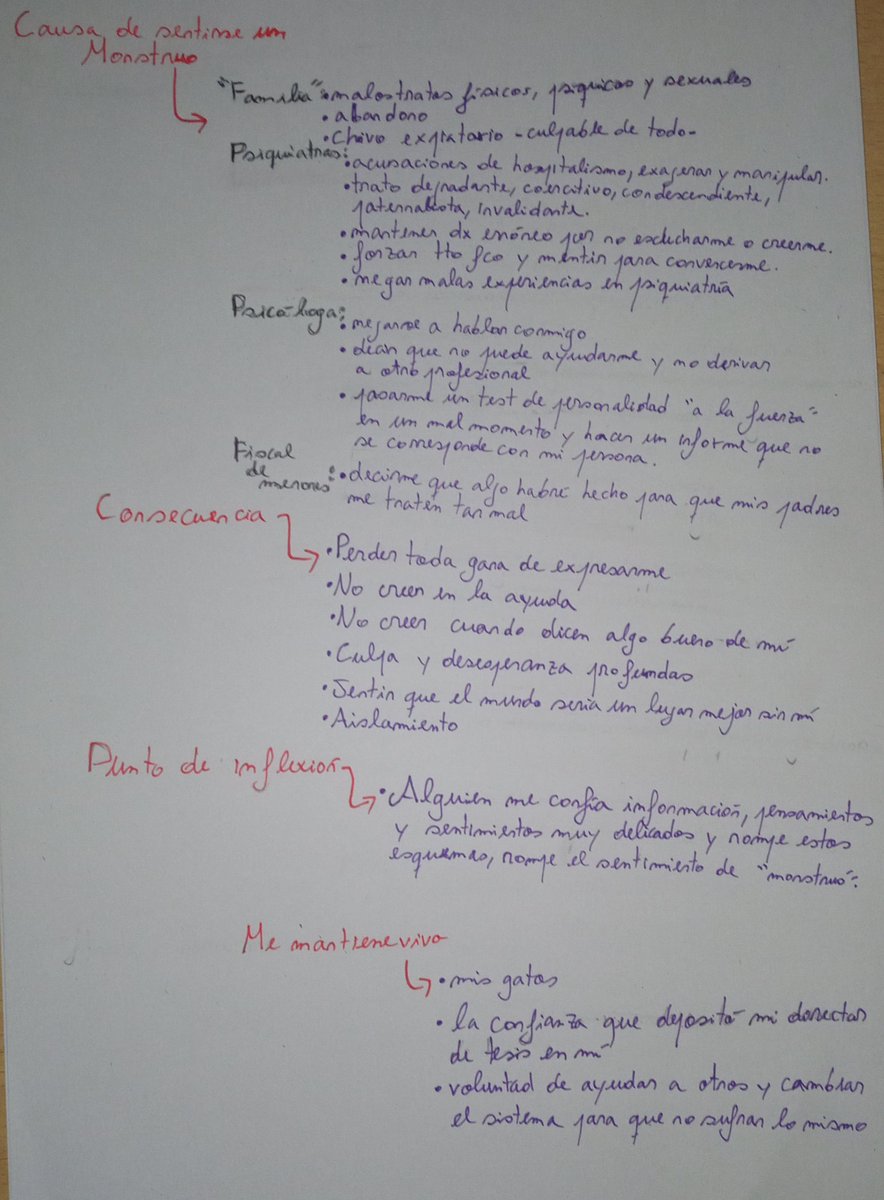 Causa de sentirse un
Monstruo
"Familia": • malostratos físicos, psíquicos y sexuales
• abandono
• Chivo expiatorio - culpable de todo -
Psiquiatras: • acusaciones de hospitalismo, exagerar y manipular.
• trato degradante, coercitivo, condescendiente,
paternalista, invalidante.
• mantener dx erróneo por no escucharme o creerme.
• forzar tto fco y mentir para convencerme.
• negar malas experiencias en psiquiatría
Psicóloga: • negarse a hablar conmigo
• decir que no puede ayudarme y no derivar
a otro profesional
• pasarme un test de personalidad "a la fuerza"
en un mal momento y hacer un informe que no
se corresponde con mi persona.
Fiscal
de
menores: • decirme que algo habré hecho para que mis padres
me traten tan mal
Consecuencia
• Perder toda gana de expresarme
• No creer en la ayuda
• No creer cuando dicen algo bueno de mí
• Culpa y desesperanza profundas
• Sentir que el mundo sería un lugar mejor sin mí
• Aislamiento
Punto de inflexión
• Alguien me confía información, pensamientos
y sentimientos muy delicados y rompe estos
esquemas, rompe el sentimiento de "monstruo".
Me mantiene vivo
• mis gatos
• la confianza que depositó mi director
de tesis en mí
• voluntad de ayudar a otros y cambiar
el sistema para que no sufran lo mismo